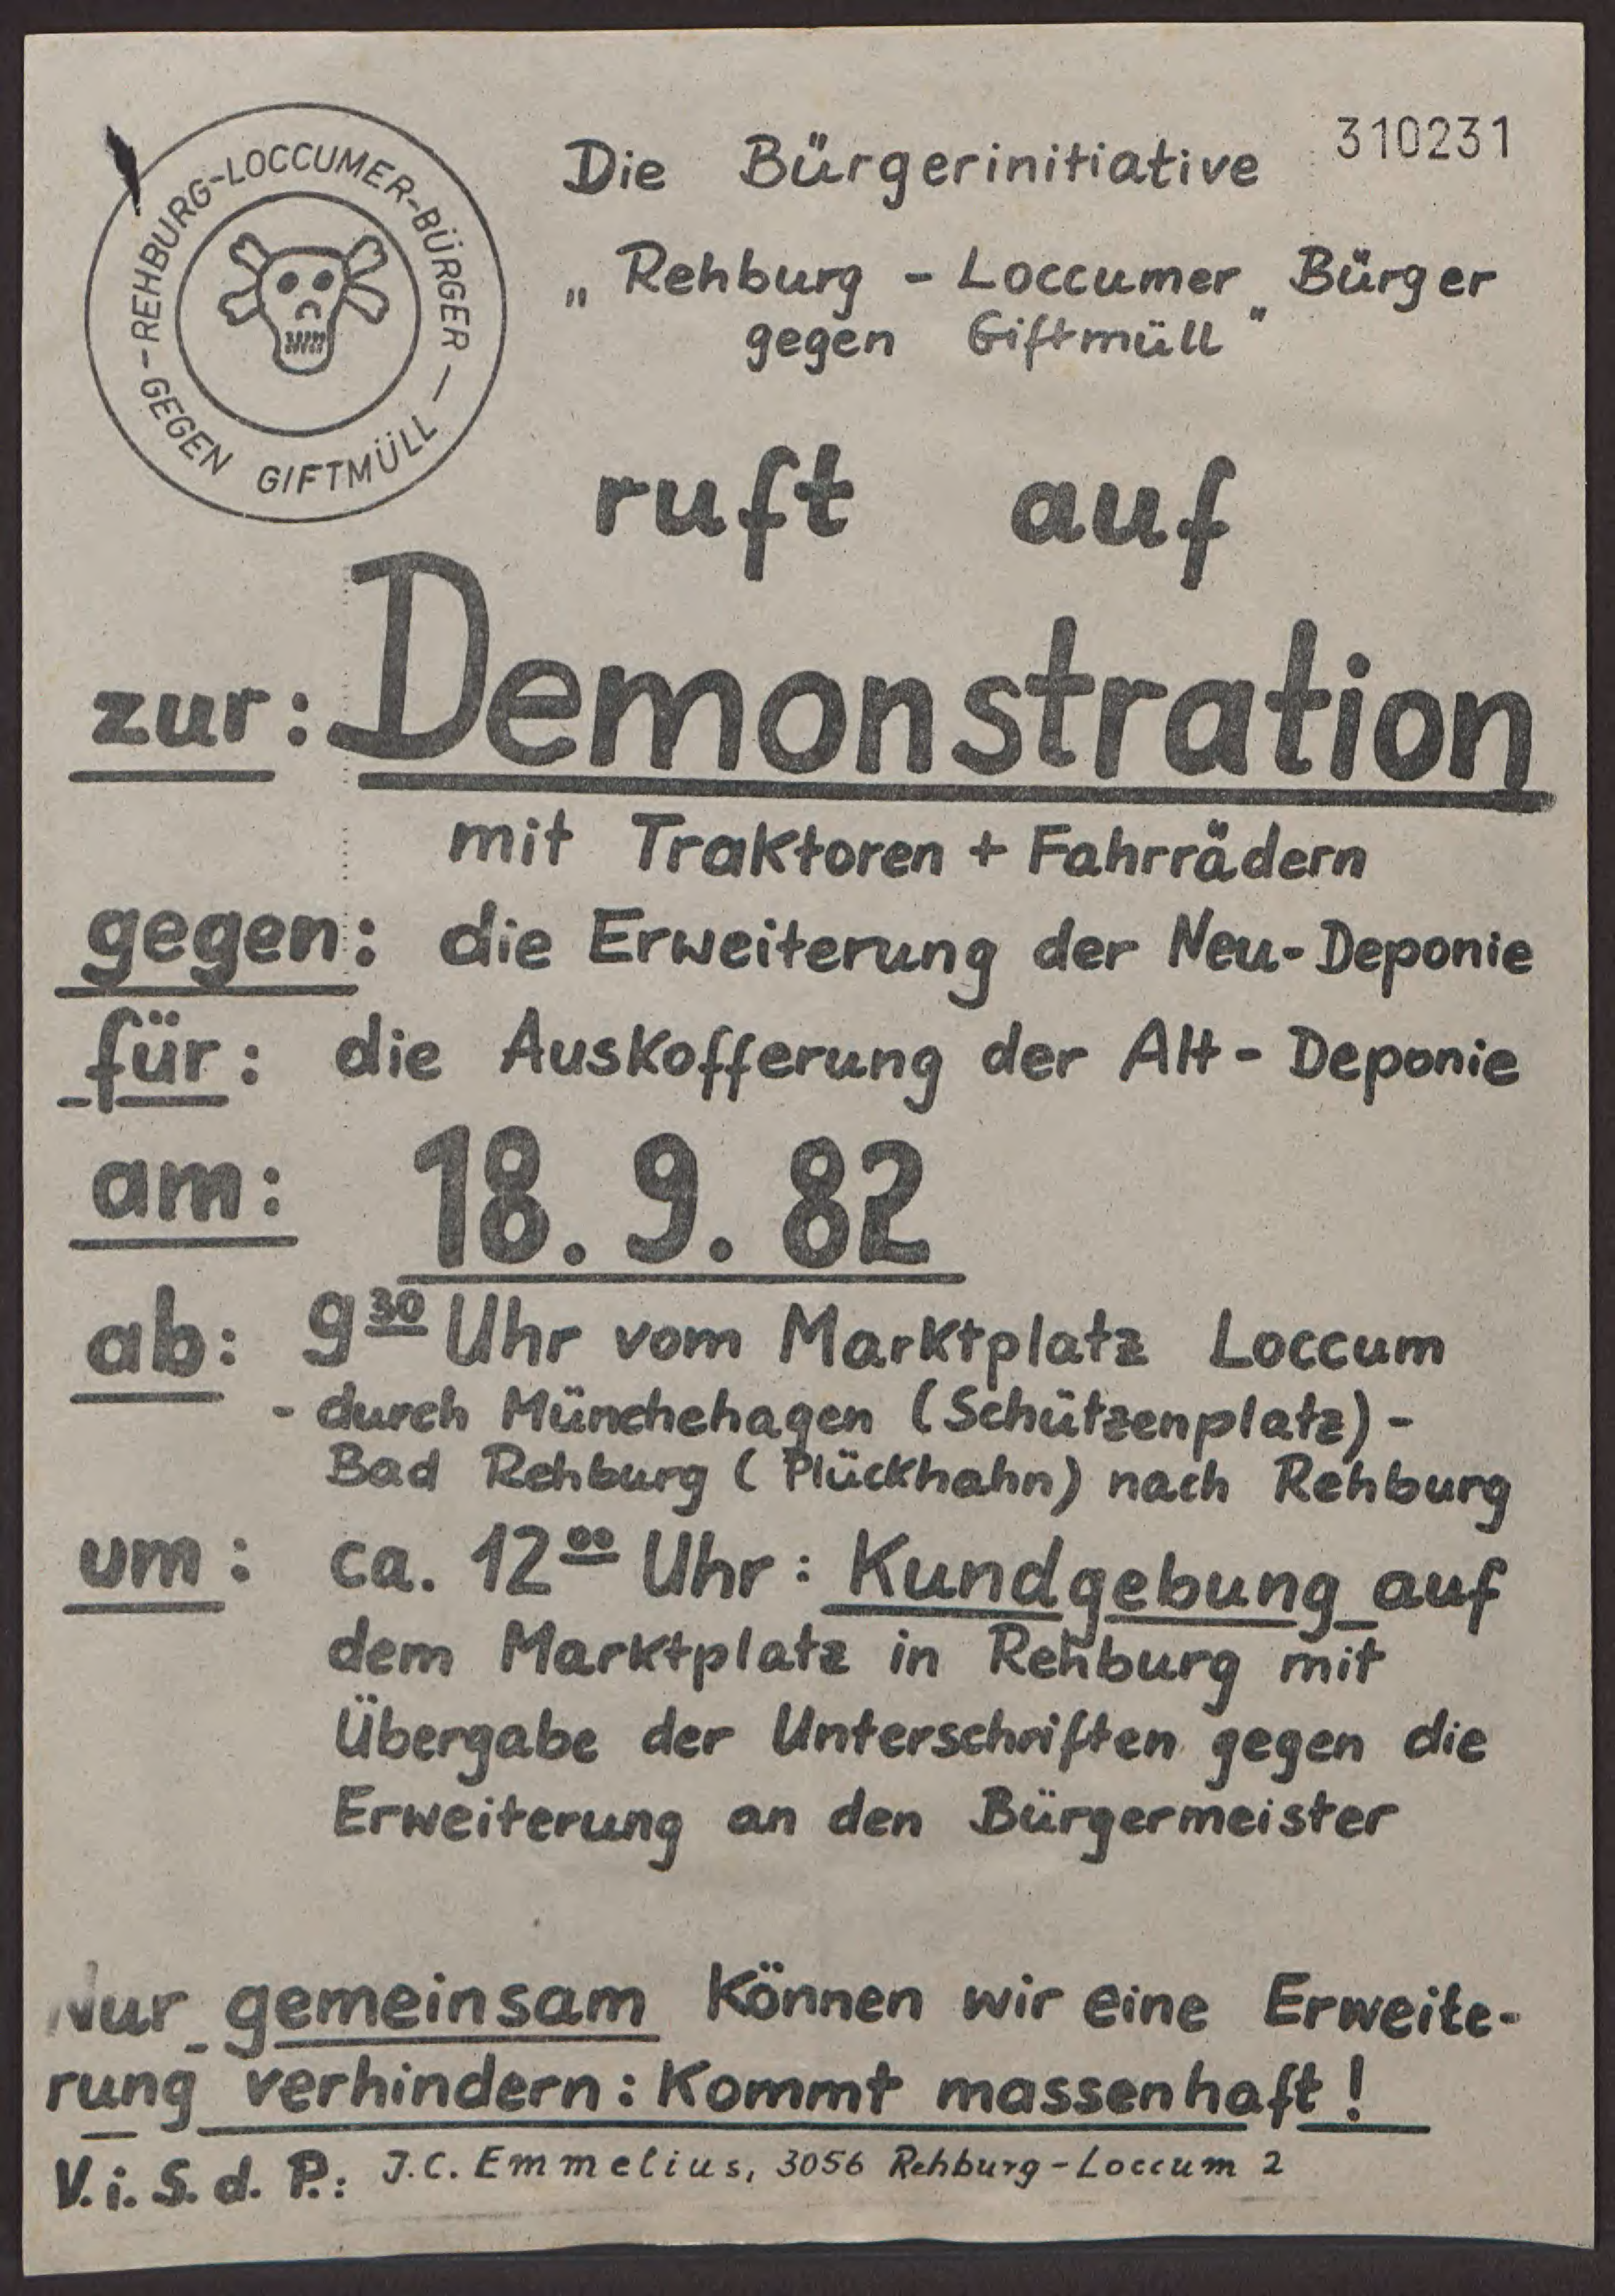 310231
- REHBURG-LOCCUMER-BÜRGER -
GEGEN GIFTMÜLL
Die Bürgerinitiative
„Rehburg - Loccumer Bürger
gegen Giftmüll"
ruft auf
zur: Demonstration
mit Traktoren + Fahrrädern
gegen: die Erweiterung der Neu-Deponie
für: die Auskofferung der Alt-Deponie
am: 18. 9. 82
ab: 9³⁰ Uhr vom Marktplatz Loccum
- durch Münchehagen (Schützenplatz) -
Bad Rehburg (Plückhahn) nach Rehburg
um: ca. 12⁰⁰ Uhr: Kundgebung auf
dem Marktplatz in Rehburg mit
Übergabe der Unterschriften gegen die
Erweiterung an den Bürgermeister
Nur gemeinsam können wir eine Erweite-
rung verhindern: Kommt massenhaft!
V.i.S.d.P.: J.C. Emmelius, 3056 Rehburg-Loccum 2